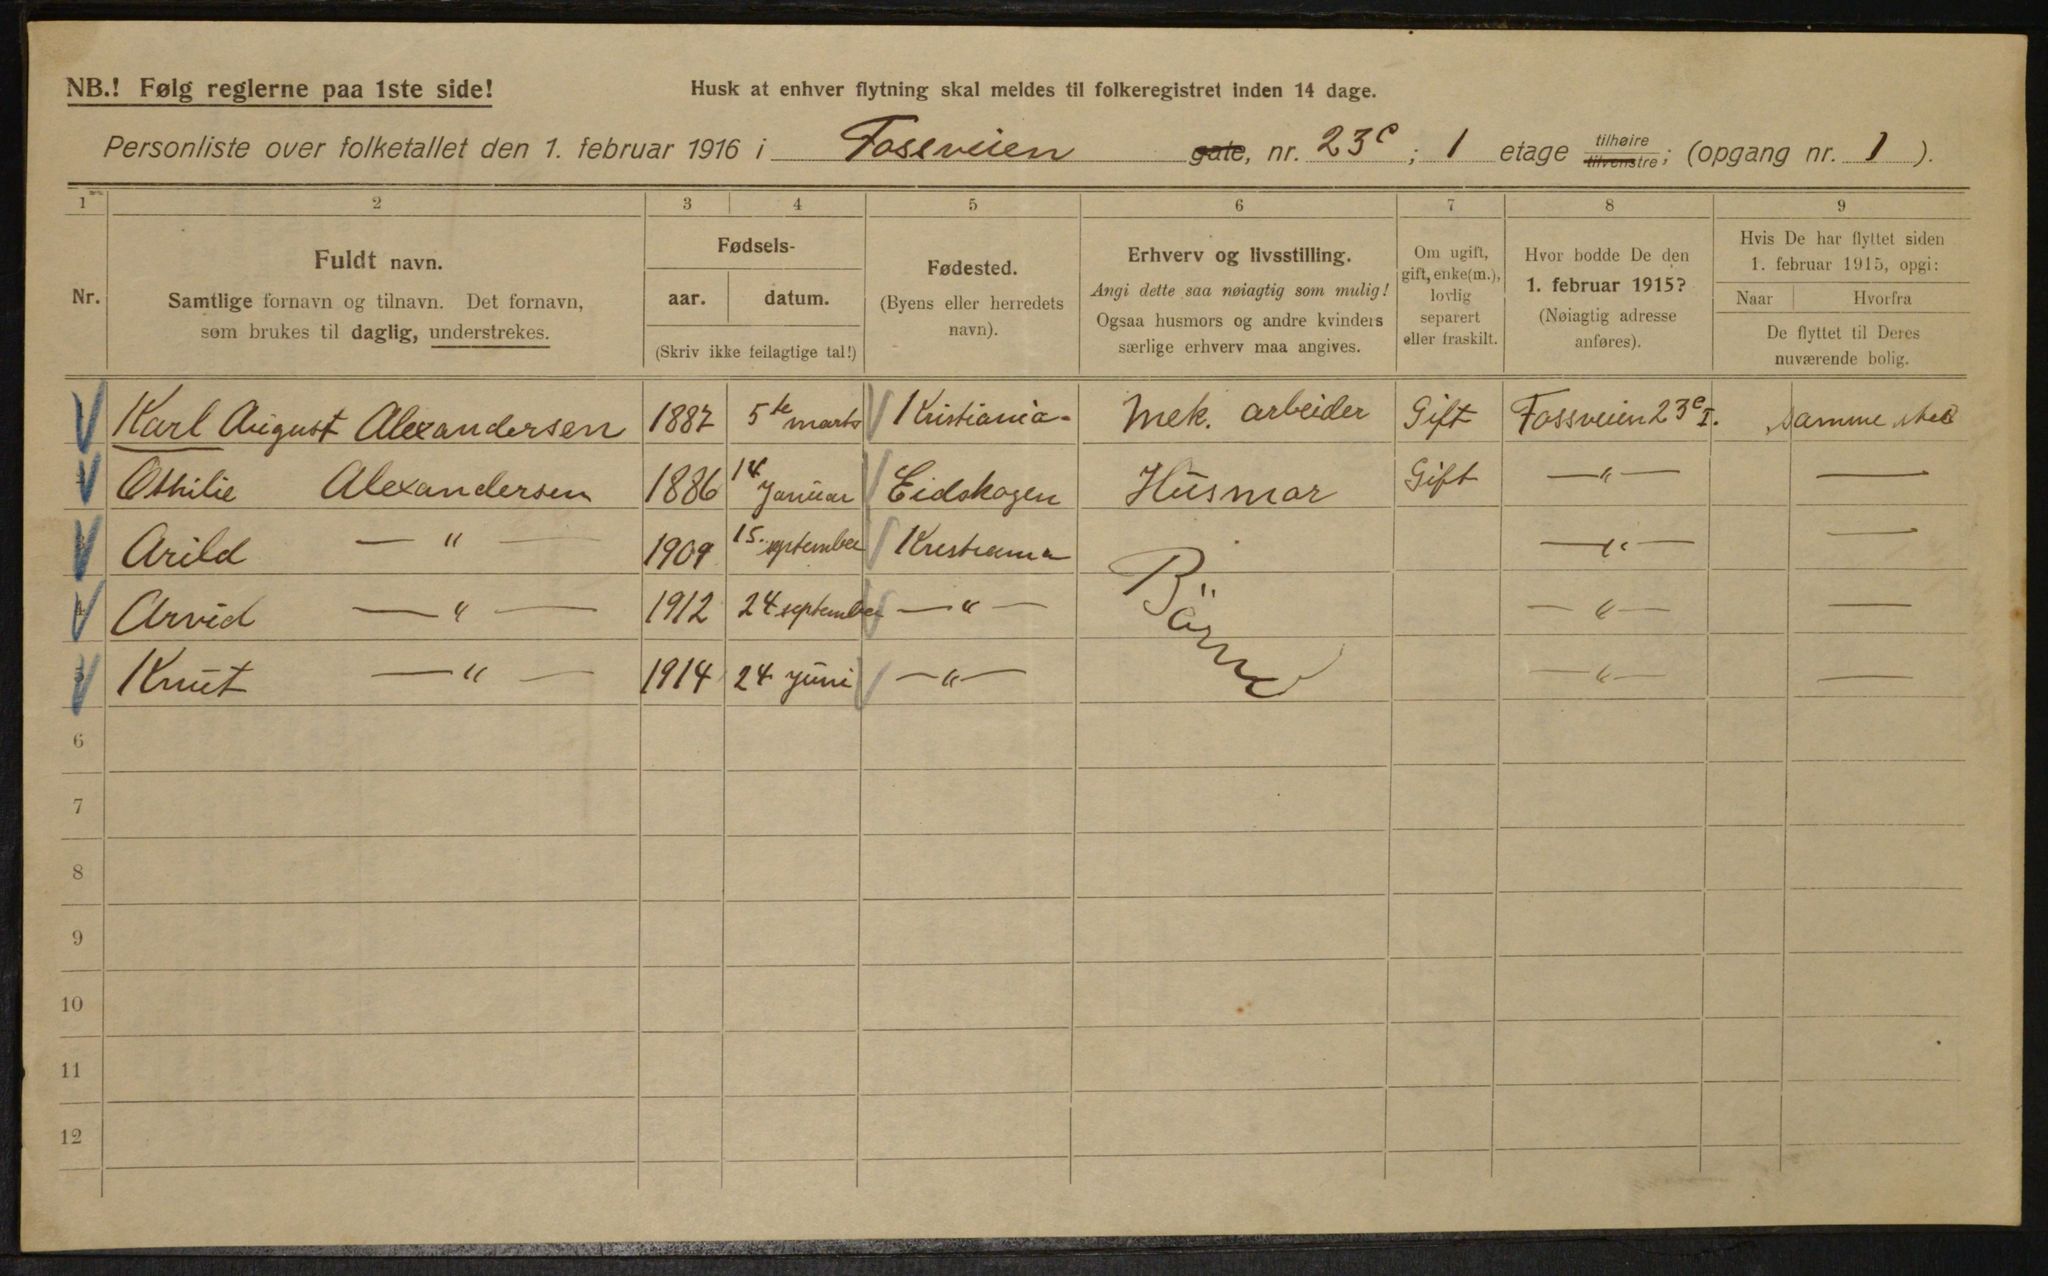 NB.! Følg reglerne paa 1ste side!
Husk at enhver flytning skal meldes til folkeregistret inden 14 dage.
Personliste over folketallet den 1. februar 1916 i Fossveien gate, nr. 23c; 1 etage tilhøire tilvenstre; (opgang nr. 1).
1 2 3 4 5 6 7 8 9
Nr.
Fuldt navn.
Samtlige fornavn og tilnavn. Det fornavn,
som brukes til daglig, understrekes.
Fødsels-
aar. datum.
(Skriv ikke feilagtige tal!)
Fødested.
(Byens eller herredets
navn).
Erhverv og livsstilling.
Angi dette saa nøiagtig som mulig!
Ogsaa husmors og andre kvinders
særlige erhverv maa angives.
Om ugift,
gift, enke(m.),
lovlig
separert
eller fraskilt.
Hvor bodde De den
1. februar 1915?
(Nøiagtig adresse
anføres).
Hvis De har flyttet siden
1. februar 1915, opgi:
Naar Hvorfra
De flyttet til Deres
nuværende bolig.
Karl August Alexandersen 1887 5te marts Kristiania Mek. arbeider Gift Fossveien 23c I. samme sted
Othilie Alexandersen 1886 14 Januar Eidskogen Husmor Gift — " — —
Arild — " — 1909 15. september Kristiania Börn — " — —
Arvid — " — 1912 24 september — " — — " — —
5 Knut — " — 1914 24 Juni — " — — " — —
6
7
8
9
10
11
12